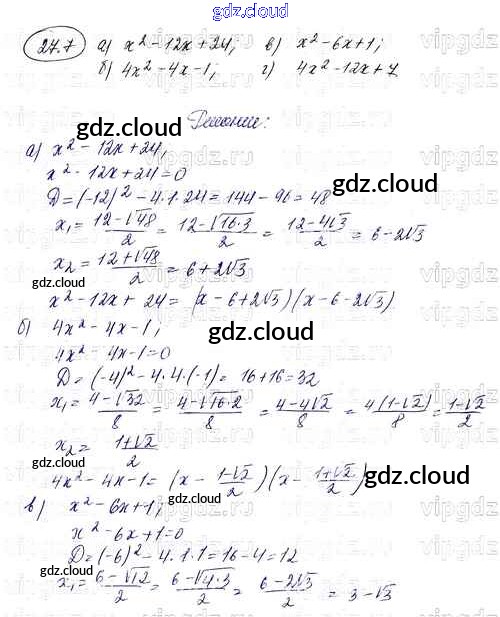 gdz.cloud
27.7 а) x² - 12x + 24; в) x² - 6x + 1;
б) 4x² - 4x - 1; г) 4x² - 12x + 7
Решение:
gdz.cloud
а) x² - 12x + 24;
x² - 12x + 24 = 0
D = (-12)² - 4·1·24 = 144 - 96 = 48
x₁ = (12 - √48)/2 = (12 - √(16·3))/2 = (12 - 4√3)/2 = 6 - 2√3
x₂ = (12 + √48)/2 = 6 + 2√3
gdz.cloud
x² - 12x + 24 = (x - 6 + 2√3)(x - 6 - 2√3)
б) 4x² - 4x - 1;
gdz.cloud
4x² - 4x - 1 = 0
D = (-4)² - 4·4·(-1) = 16 + 16 = 32
x₁ = (4 - √32)/8 = (4 - √(16·2))/8 = (4 - 4√2)/8 = 4(1 - √2)/8 = (1 - √2)/2
x₂ = (1 + √2)/2
4x² - 4x - 1 = (x - (1 - √2)/2)(x - (1 + √2)/2)
gdz.cloud
в) x² - 6x + 1;
x² - 6x + 1 = 0
D = (-6)² - 4·1·1 = 16 - 4 = 12
gdz.cloud
x₁ = (6 - √12)/2 = (6 - √(4·3))/2 = (6 - 2√3)/2 = 3 - √3
gdz.cloud